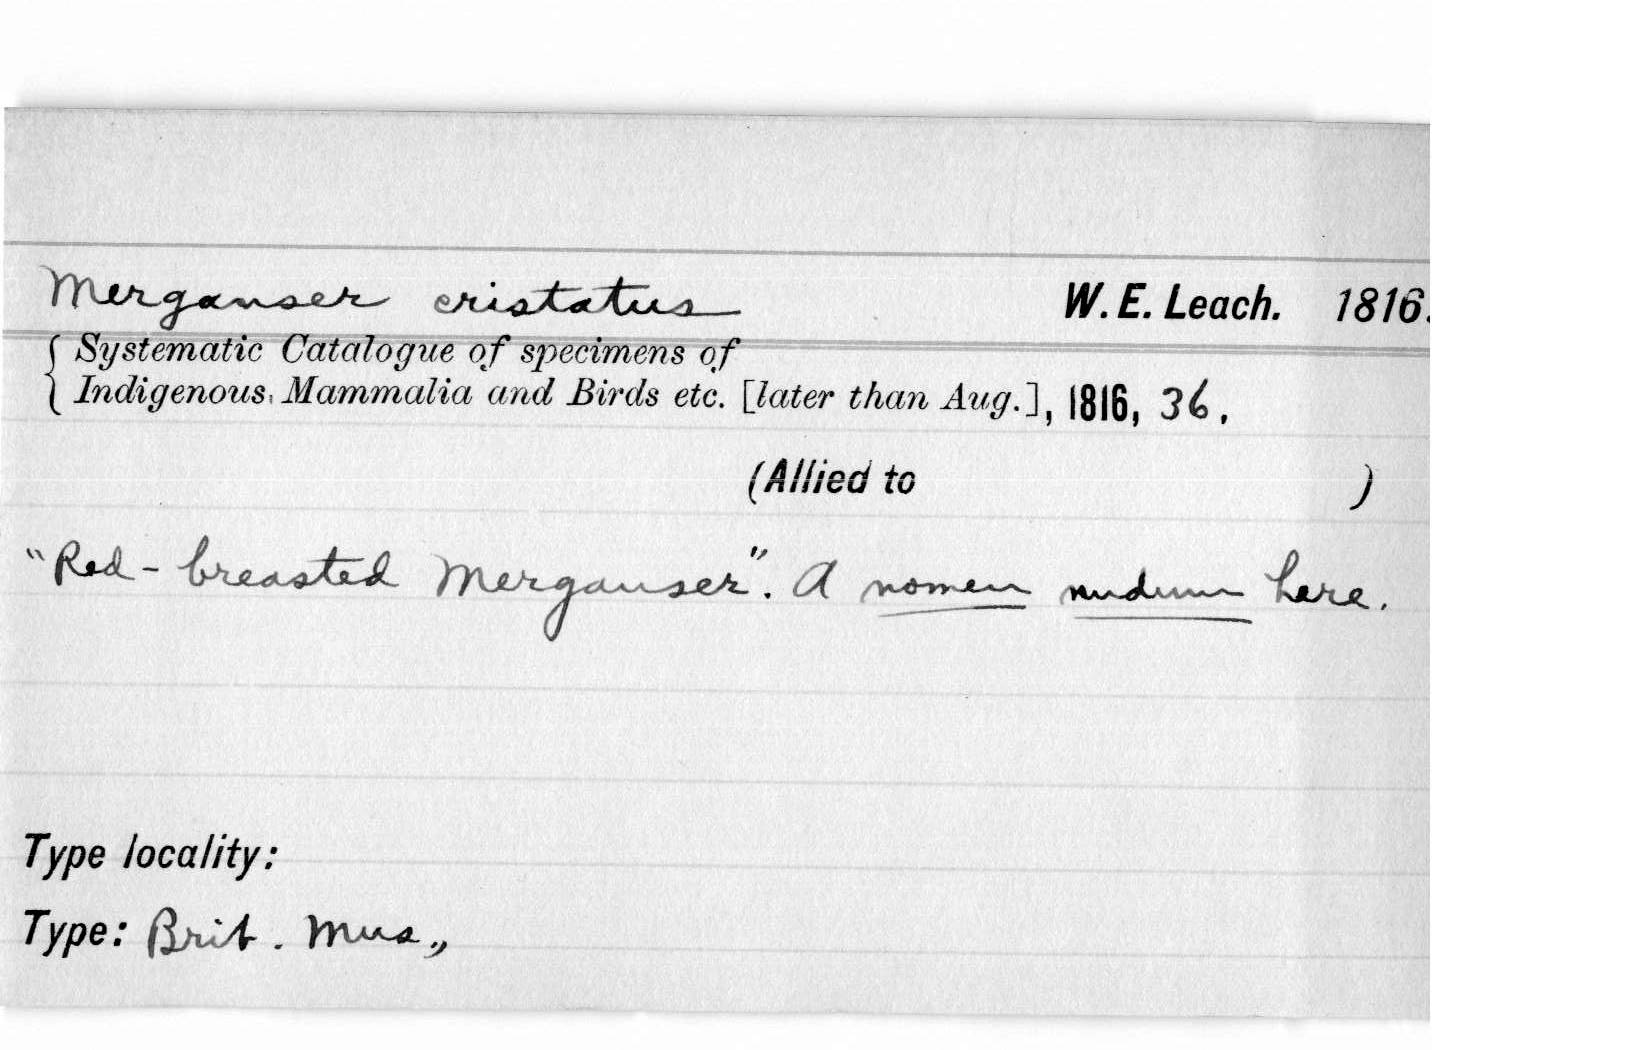 Merganser cristatus W. E. Leach. 1816.
Systematic Catalogue of specimens of
Indigenous Mammalia and Birds etc. [later than Aug.], 1816, 36.
(Allied to )
"Red-breasted Merganser". A nomen nudum here.
Type locality:
Type: Brit. Mus.,